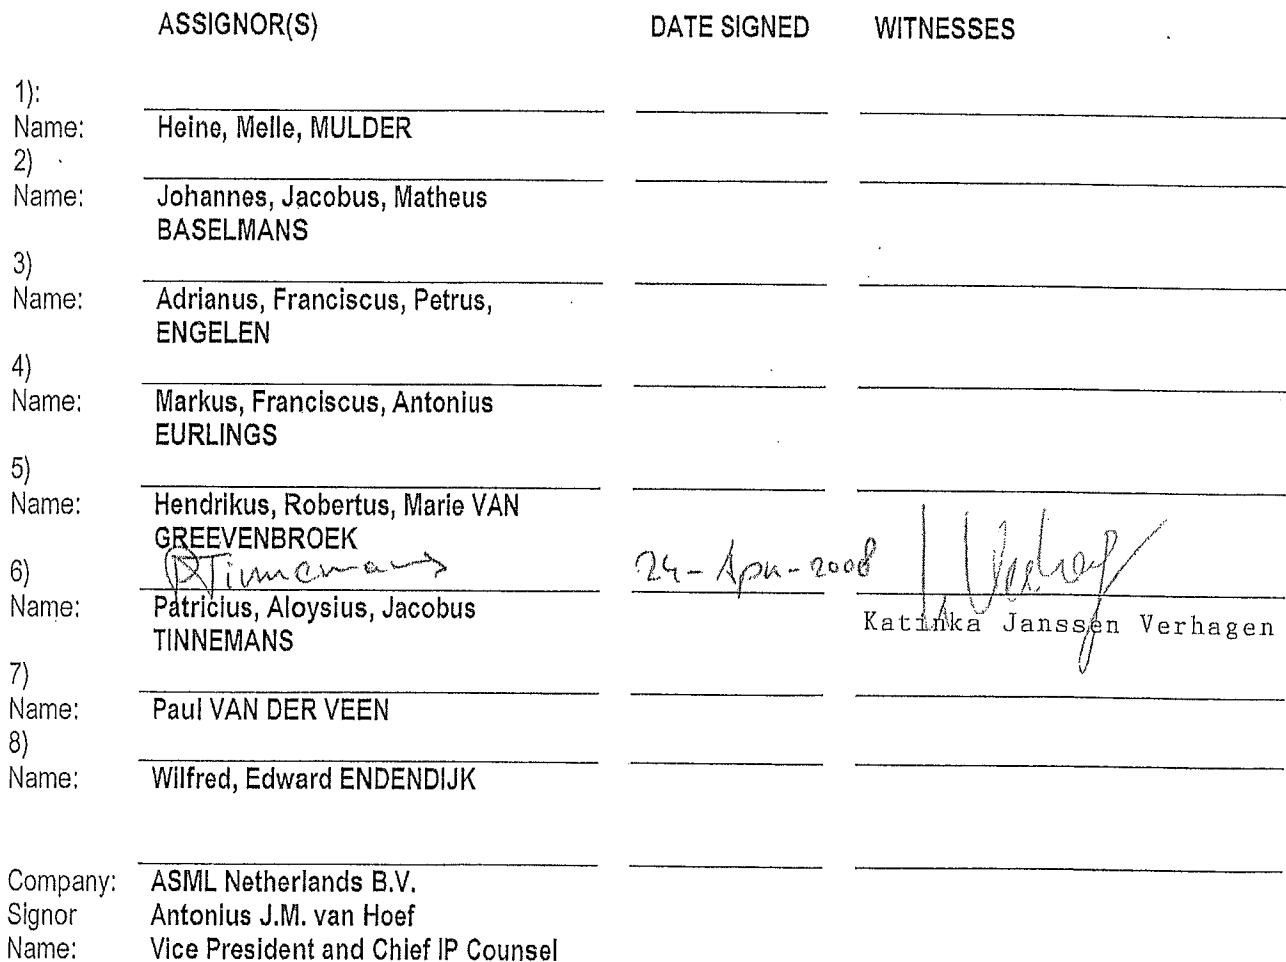 ASSIGNOR(S) DATE SIGNED WITNESSES
1):
Name: Heine, Melle, MULDER
2)
Name: Johannes, Jacobus, Matheus
BASELMANS
3)
Name: Adrianus, Franciscus, Petrus,
ENGELEN
4)
Name: Markus, Franciscus, Antonius
EURLINGS
5)
Name: Hendrikus, Robertus, Marie VAN
GREEVENBROEK
6) PTinnemans 24-Apr-2008
Name: Patricius, Aloysius, Jacobus
TINNEMANS Katinka Janssen Verhagen
7)
Name: Paul VAN DER VEEN
8)
Name: Wilfred, Edward ENDENDIJK
Company: ASML Netherlands B.V.
Signor Antonius J.M. van Hoef
Name: Vice President and Chief IP Counsel